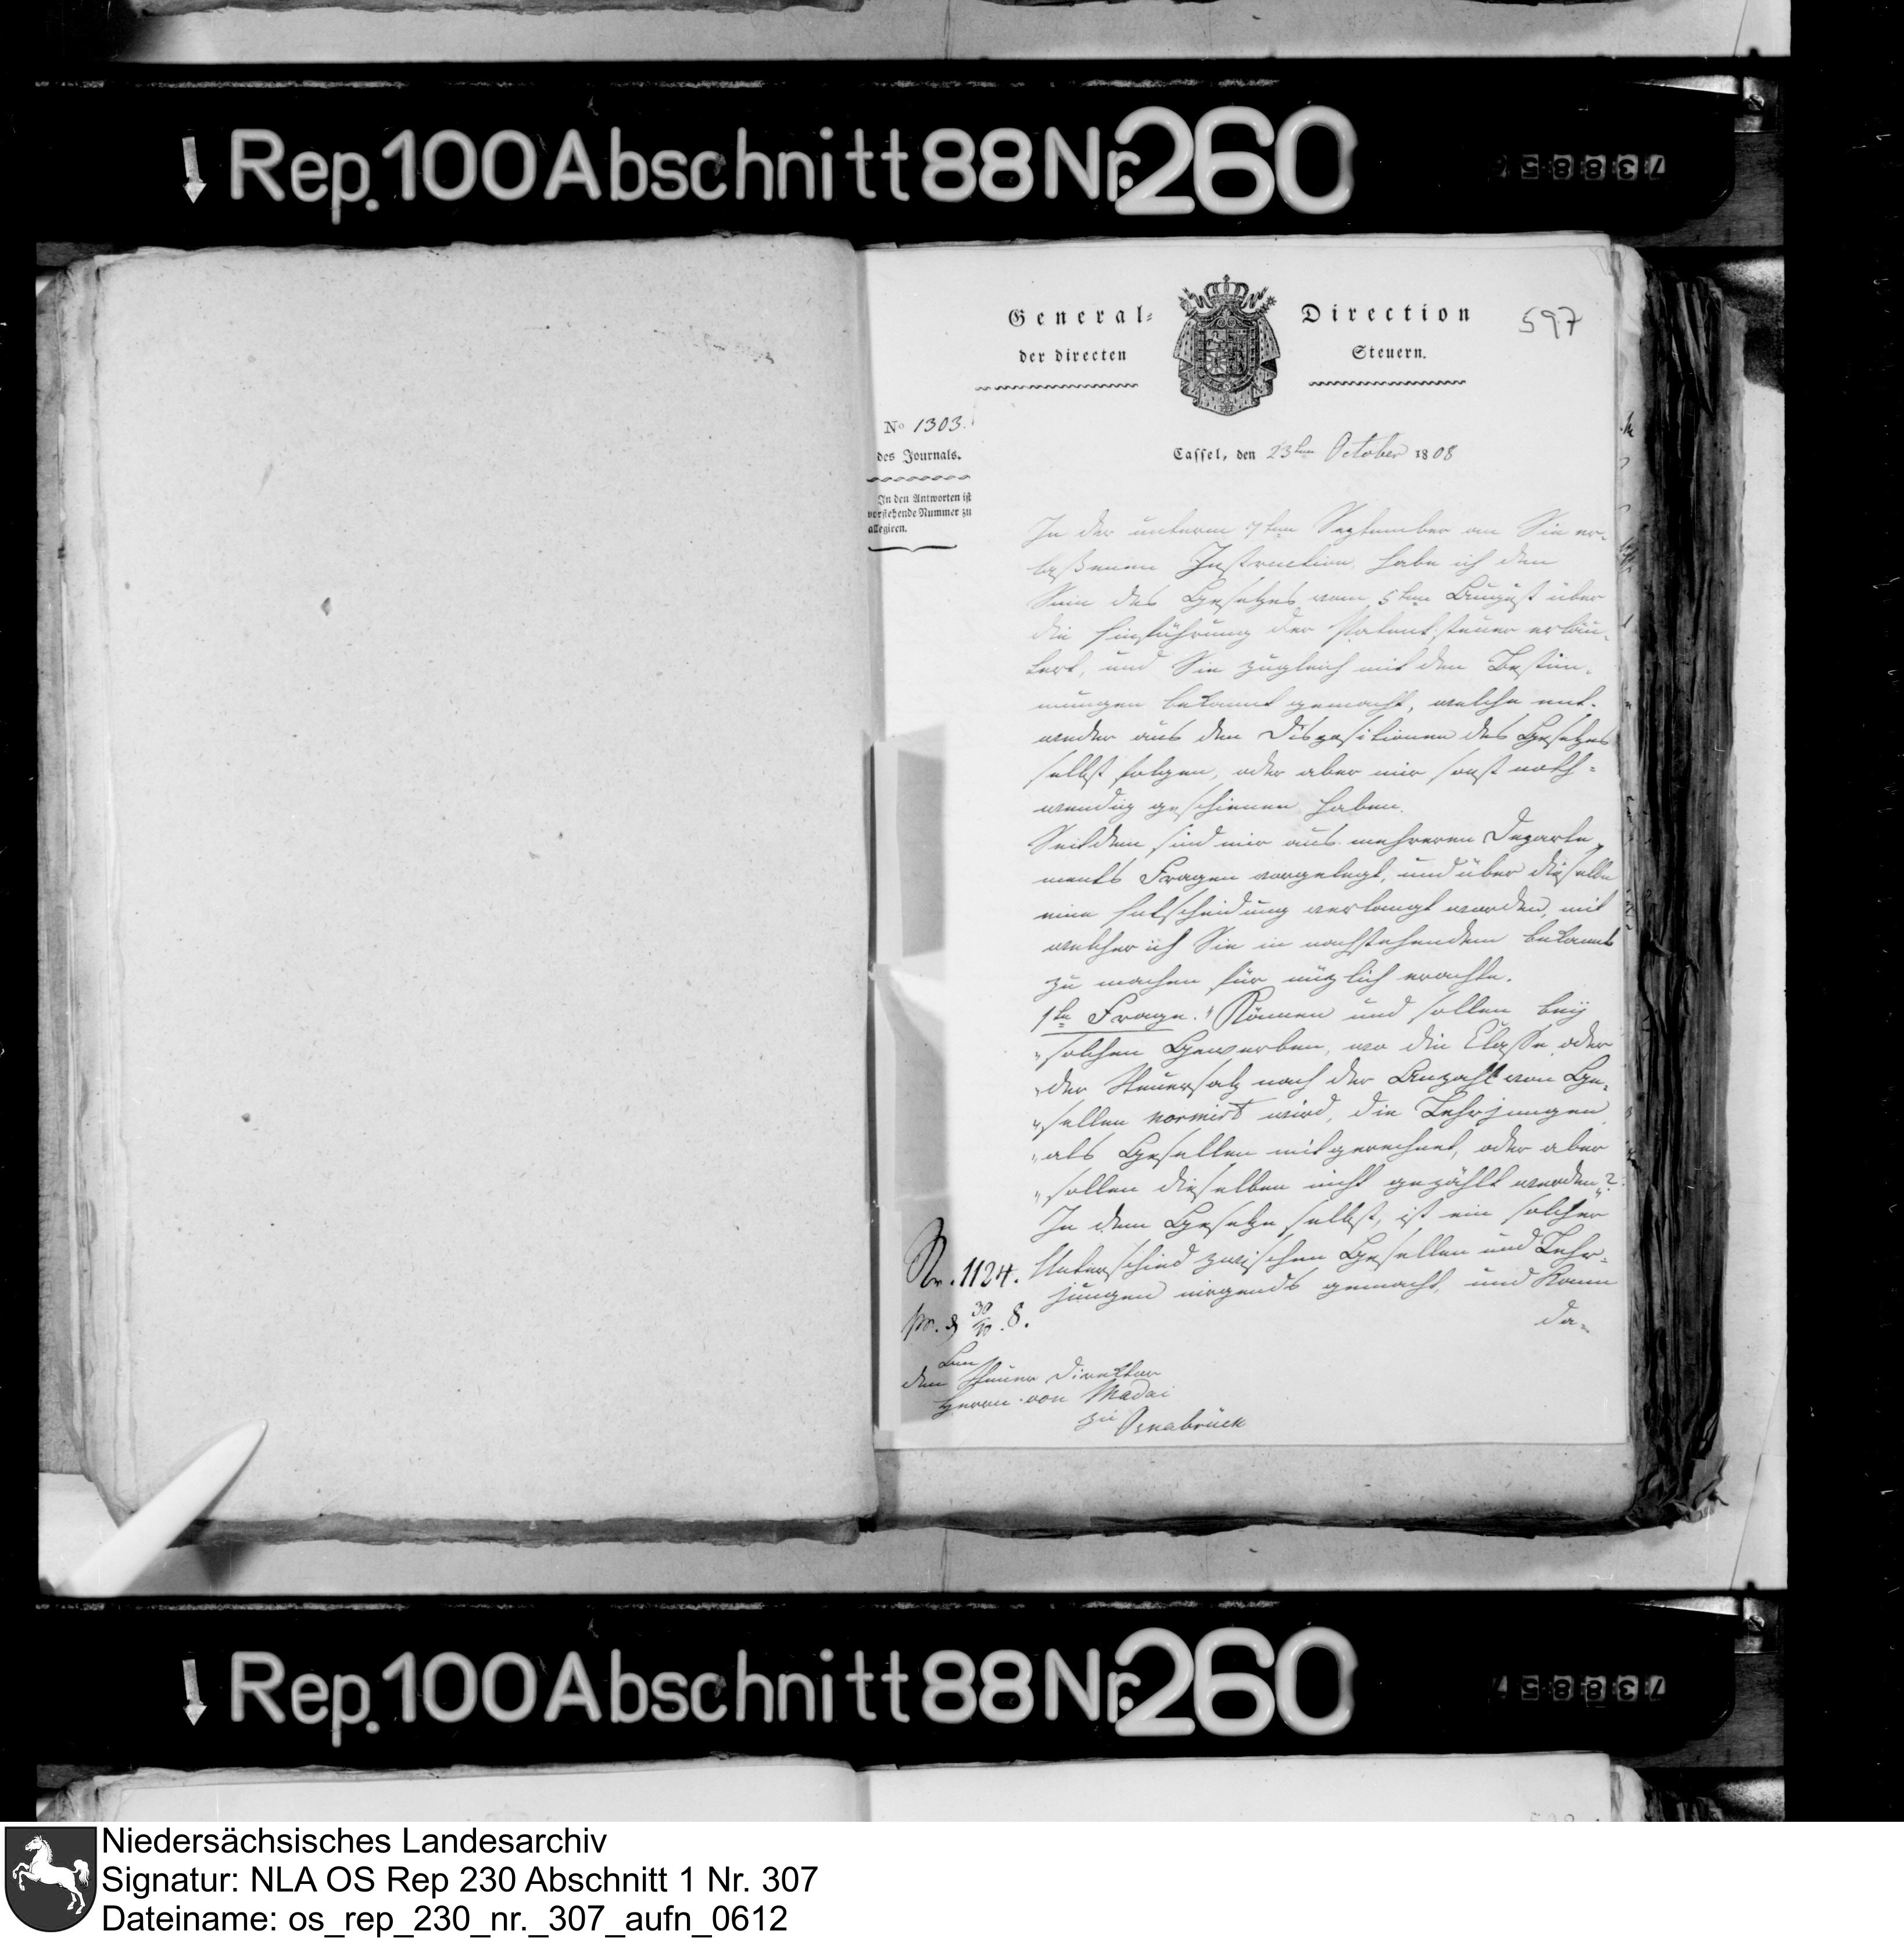 Rep. 100 Abschnitt 88 Nr. 260
73885
General-Direction
der directen Steuern.
597
No 1303.
des Journals.
In den Antworten ist
vorstehende Nummer zu
allegiren.
Cassel, den 23ten October 1808
In der unterm 7ten September an Sie er-
laßenen Instruction, habe ich den
Sinn des Gesetzes vom 5ten August über
die Einführung der Patentsteuer erläu-
tert, und Sie zugleich mit den Bestim-
mungen bekannt gemacht, welche ent-
weder aus den Dispositionen des Gesetzes
selbst folgen, oder aber mir sonst noth-
wendig geschienen haben.
Seitdem sind mir aus mehreren Departe-
ments Fragen vorgelegt, und über dieselbe
eine Entscheidung verlangt worden, mit
welcher ich Sie in nachstehendem bekannt
zu machen für nüzlich erachte.
1te Frage. "Können und sollen bey
"solchen Gewerben, wo die Classe oder
"der Steuersatz nach der Anzahl von Ge-
"sellen normirt wird, die Lehrjungen
"als Gesellen mitgerechnet, oder aber
"sollen dieselben nicht gezählt werden?"
In dem Gesetze selbst, ist ein solcher
Unterschied zwischen Gesellen und Lehr-
jungen nirgends gemacht, und kann
da-
Nr. 1124.
pr. d 30/10. 8.
An
den Steuer Direktor
Herrn von Madai
zu Osnabrück
Rep. 100 Abschnitt 88 Nr. 260
73885
Niedersächsisches Landesarchiv
Signatur: NLA OS Rep 230 Abschnitt 1 Nr. 307
Dateiname: os_rep_230_nr._307_aufn_0612